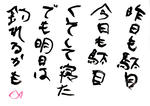 昨日も駄目
今日も駄目
くてして寝た
でも明日は
釣れるかも